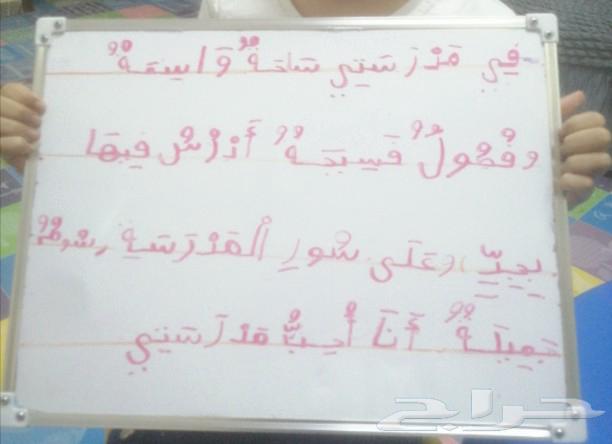 فِي مَدْرَسَتِي سَاحَةٌ وَاسِعَةٌ
وَفُصُولٌ فَسِيحَةٌ أَدْرُسُ فِيهَا
بِجِدٍّ وَعَلَى سُورِ الْمَدْرَسَةِ رُسُومٌ
جَمِيلَةٌ أَنَا أُحِبُّ مَدْرَسَتِي
حراج